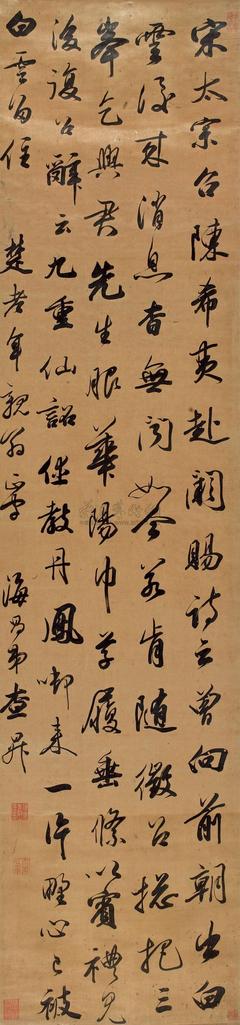 宋太宗召陳希夷赴闕賜詩云曾向前朝出白
雲後來消息杳無聞如今若肯隨徵召揔把三
峯乞與君先生服華陽巾草履垂絛以賓禮見
後復召辭云九重仙詔休教丹鳳啣來一片野心已被
白雲留住 楚老年親翁 海昌弟查昇